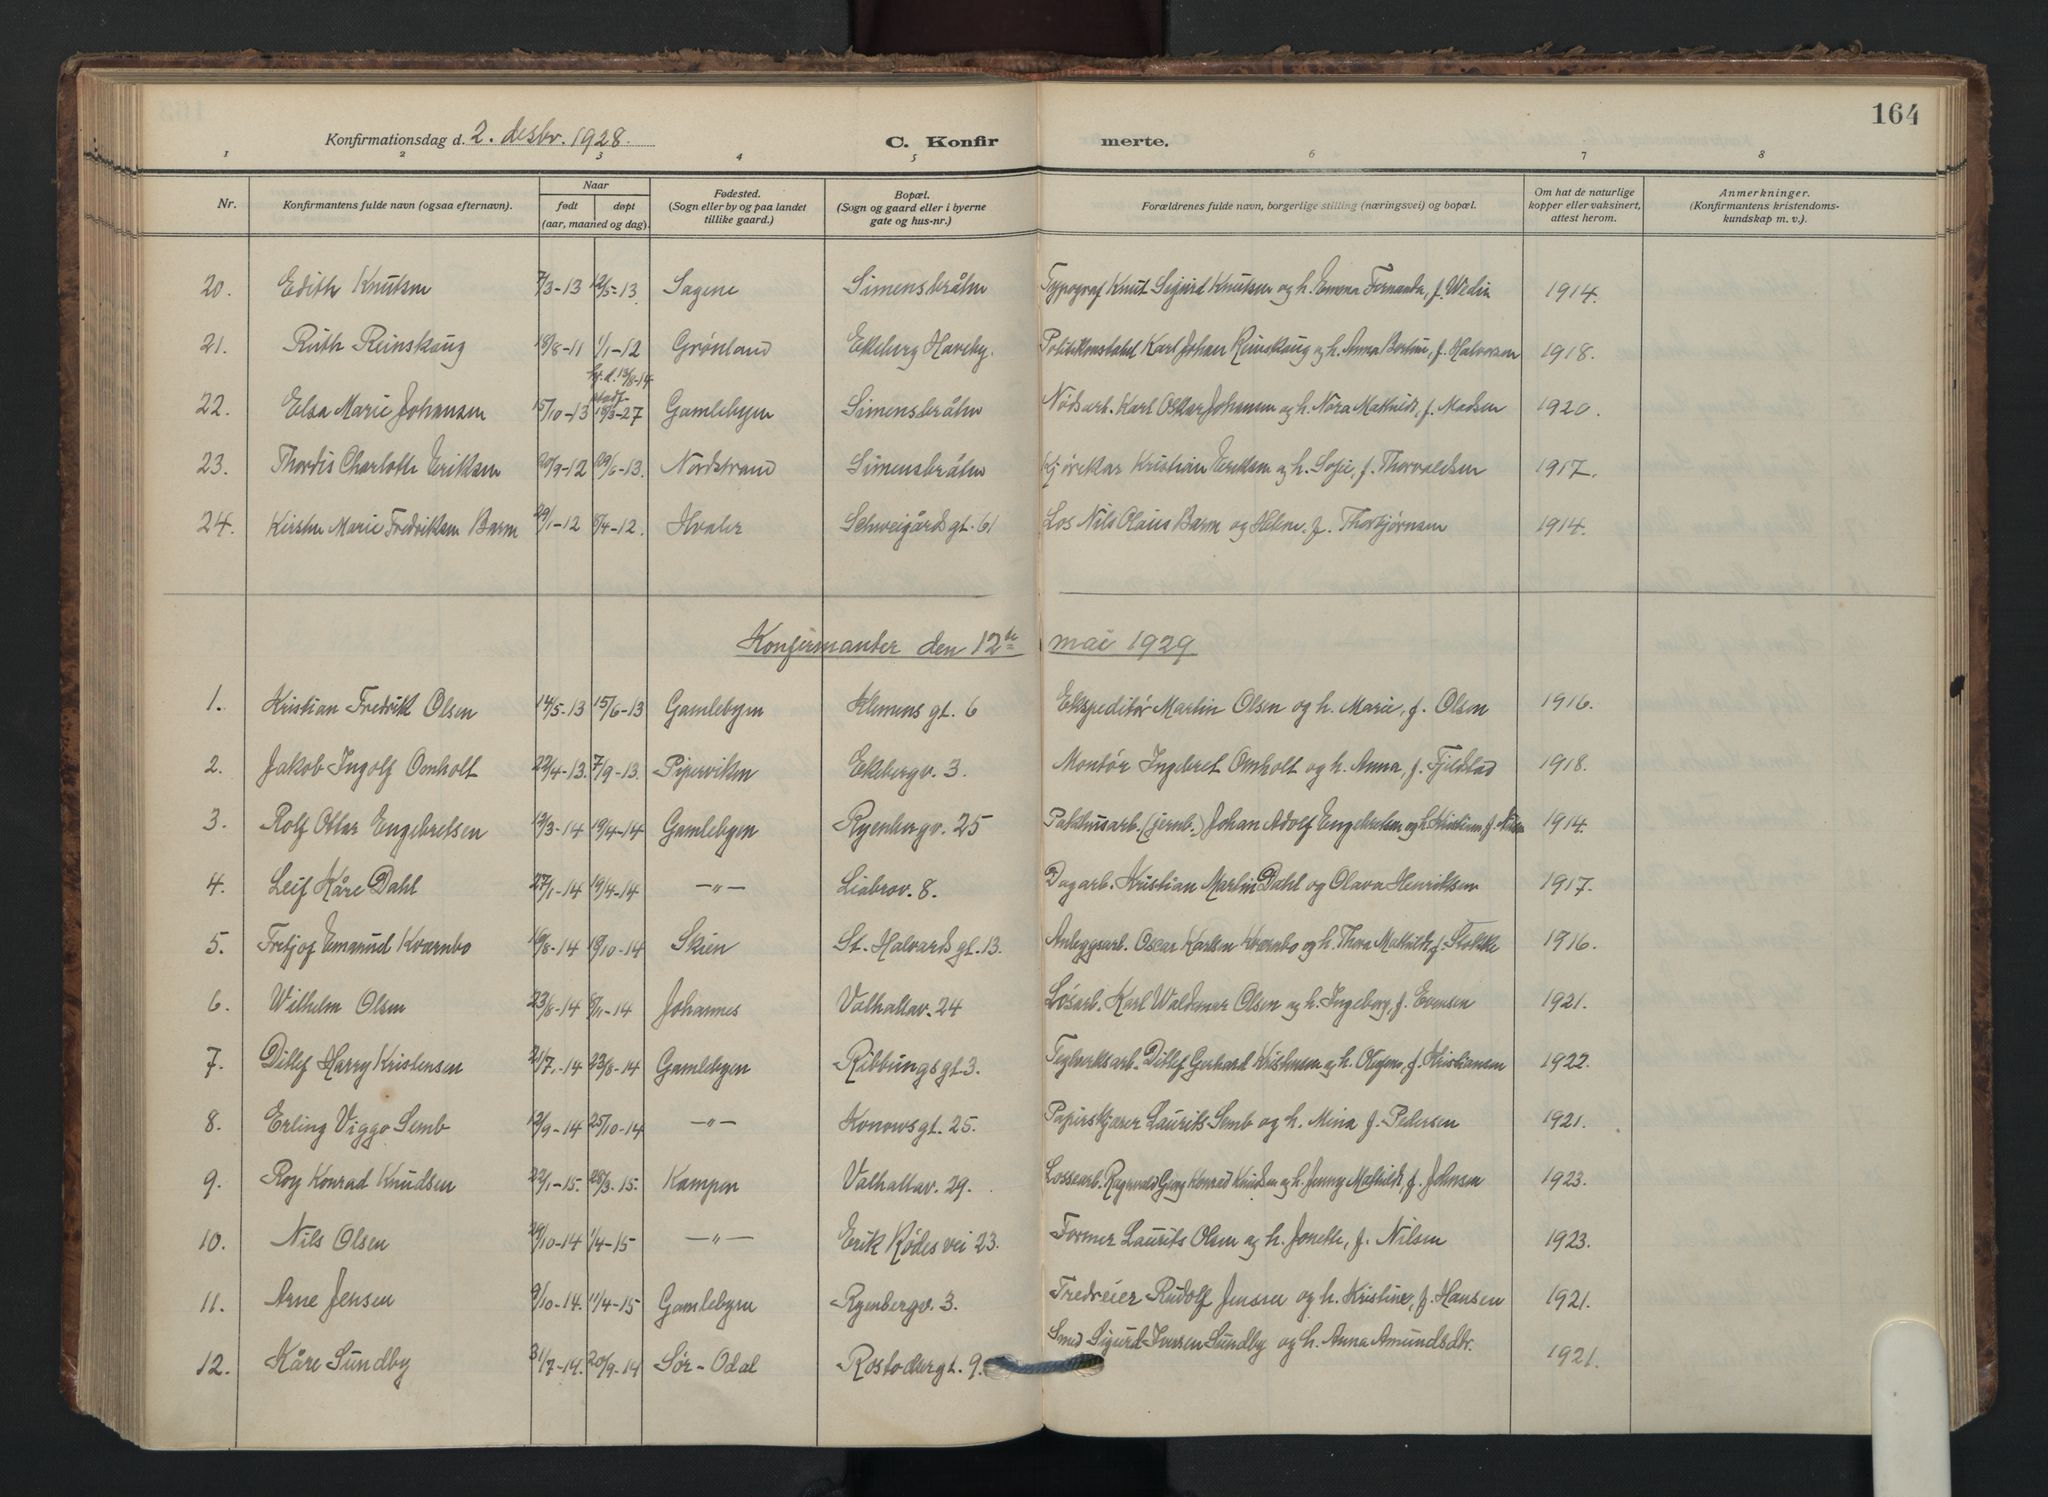 164
Konfirmationsdag d. 2. desbr. 1928.
C. Konfirmerte.
1 2 3 4 5 6 7 8
Nr. Konfirmantens fulde navn (ogsaa efternavn). Naar født døpt (aar, maaned og dag) Fødested. (Sogn eller by og paa landet tillike gaard.) Bopæl. (Sogn og gaard eller i byerne gate og hus-nr.) Forældrenes fulde navn, borgerlige stilling (næringsvei) og bopæl. Om hat de naturlige kopper eller vaksinert, attest herom. Anmerkninger. (Konfirmantens kristendoms-kundskap m. v.).
20. Edith Knutsen 7/3-13 12/5-13 Sagene Simensbråtn Typograf Knut Sigurd Knutsen og h. Emma Fernanda, f. Wedin 1914.
21. Ruth Reinskaug 18/8-11 1/1-12 Grønland Ekeberg Haveby. Politikonstabel Karl Johan Reinskaug og h. Anna Bertine, f. Halvorsen 1918.
22. Elsa Marie Johansen 15/10-13 hj.d. 13/8-14 stadf. 18/3-27 Gamlebyen Simensbråtn Nødsarb. Karl Oskar Johansen og h. Nora Mathilde, f. Madsen 1920.
23. Thordis Charlotte Eriksen 20/9-12 29/6-13. Nordstrand Simensbråtn Kjørekar Kristian Eriksen og h. Sofie, f. Thorvaldsen 1917.
24. Kirsten Marie Fredriksen Barm 29/1-12 8/4-12. Hvaler Schweigårds gt. 61 Los Nils Olaus Barm og Helene, f. Thorbjørnsen 1914.
Konfirmanter den 12te mai 1929
1. Kristian Fredrik Olsen 14/5-13 15/6-13 Gamlebyen Klemens gt. 6 Ekspeditør Martin Olsen og h. Marie, f. Olsen 1916.
2. Jakob Ingolf Omholt 22/4-13. 7/9-13. Pipervikem Ekebergv. 3. Montør Ingebret Omholt og h. Anna, f. Fjeldstad 1918.
3. Rolf Ottar Engebretsen 12/3-14 19/4-14 Gamlebyen Ryenbergv. 25 Pakhusarb. (jernb.) Johan Adolf Engebretsen og h. Kristiane, f. Nilsen 1914.
4. Leif Kåre Dahl 27/1-14 19/4-14 —"— Liabrov. 8. Dagarb. Kristian Martin Dahl og Olava Henriksen 1917.
5. Fretjof Emanuel Kvernbo 16/8-14 18/10-14 Skien St. Halvards gt. 13. Anleggsarb. Oscar Karlsen Kvernbo og h. Thora Mathilde, f. Stokke 1916.
6. Wilhelm Olsen 23/8-14 8/11-14 Johannes Valhallav. 24 Løsarb. Karl Waldemar Olsen og h. Ingeborg, f. Evensen 1921.
7. Ditlef Harry Kristensen 21/7-14 23/8-14 Gamlebyen Ribbungsgt. 3. Teglverksarb. Ditlef Gerhard Kristensen og h. Olufine, f. Kristiansen 1922.
8. Erling Viggo Semb 12/9-14 25/10-14 —"— Konowsgt. 25. Papirskjærer Laurits Semb og h. Mina f. Pedersen 1921.
9. Roy Konrad Knudsen 22/1-15. 28/3-15. Kampen Valhallav. 29. Lossearb. Ragnvald Georg Konrad Knudsen og h. Jenny Mathilde, f. Johnsen 1923.
10. Nils Olsen 29/10-14 1/4-15 —"— Erik Rødes vei 23. Former Laurits Olsen og h. Jonette, f. Nilsen 1923.
11. Arne Jensen 9/10-14. 11/4-15 Gamlebyen Ryenbergv. 3. Fredreier Rudolf Jensen og h. Kristine, f. Hansen 1921.
12. Kåre Sundby 31/7-14. 20/9-14 Sør-Odal Rostockergt. 9. Smed Sigurd Iversen Sundby og h. Anna Amundsdtr. 1921.